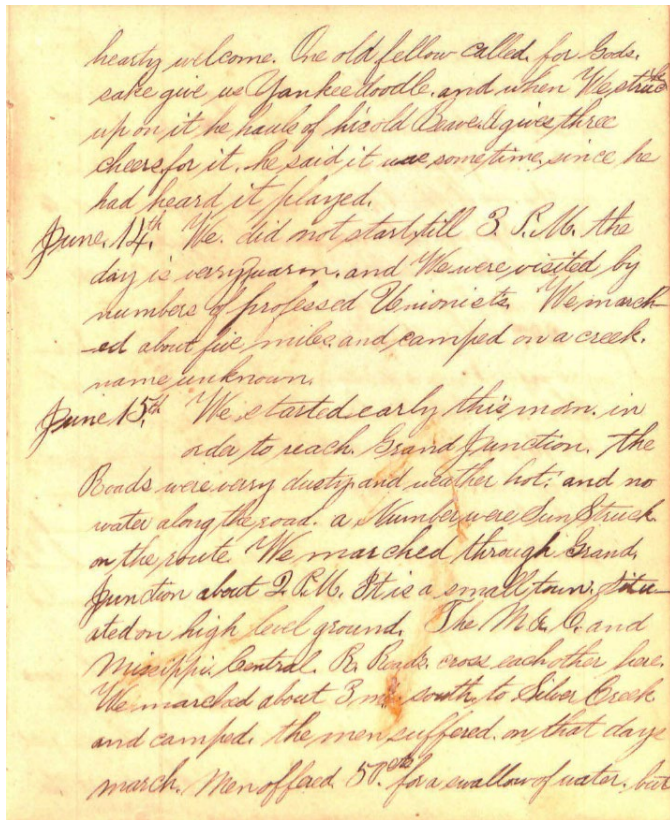 hearty welcome. One old fellow called. for Gods.
sake give us Yankeedoodle. and when We struck
up on it he hauls of his old Beaver & gives three
cheers for it. he said it was sometime since he
had heard it played.
June. 14th. We. did not start till 3. P.M. the
day is very warm. and We were visited by
numbers of professed Unionists. We march
-ed about five miles and camped on a creek.
name unknown.
June 15th We started early this morn. in
order to reach. Grand Junction. the
Roads were very dusty and weather hot. and no
water along the road. a Number were Sun Struck
on the route. We marched through Grand.
Junction about 2. P.M. It is a small town. situ
ated on high level ground. The M & C. and
Missippi Central. R. Roads. cross each other here.
We marched about 3 mls south to Silver Creek
and camped. the men suffered. on that days
march. Men offered. 50cts for a swallow of water. but